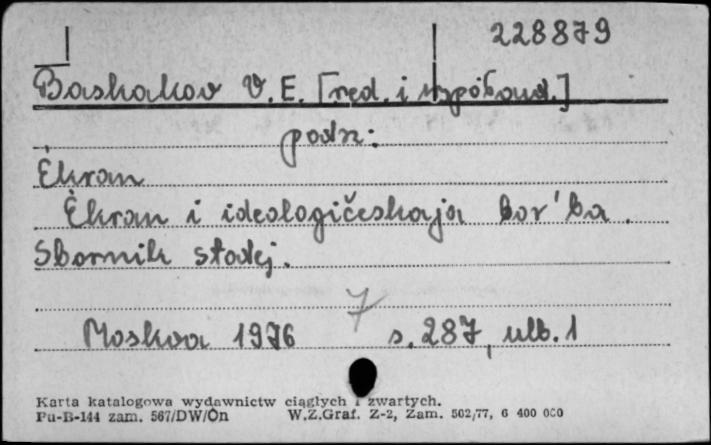 228879
Baskakov V. E. [red. i współaut.]
podz:
Ėkran
Ėkran i ideologičeskaja bor'ba.
Sbornik statej.
7
Moskva 1976 s. 287, ulb. 1
Karta katalogowa wydawnictw ciągłych i zwartych.
Pu-B-144 zam. 567/DW/On W.Z.Graf. Z-2, Zam. 502/77, 6 400 000